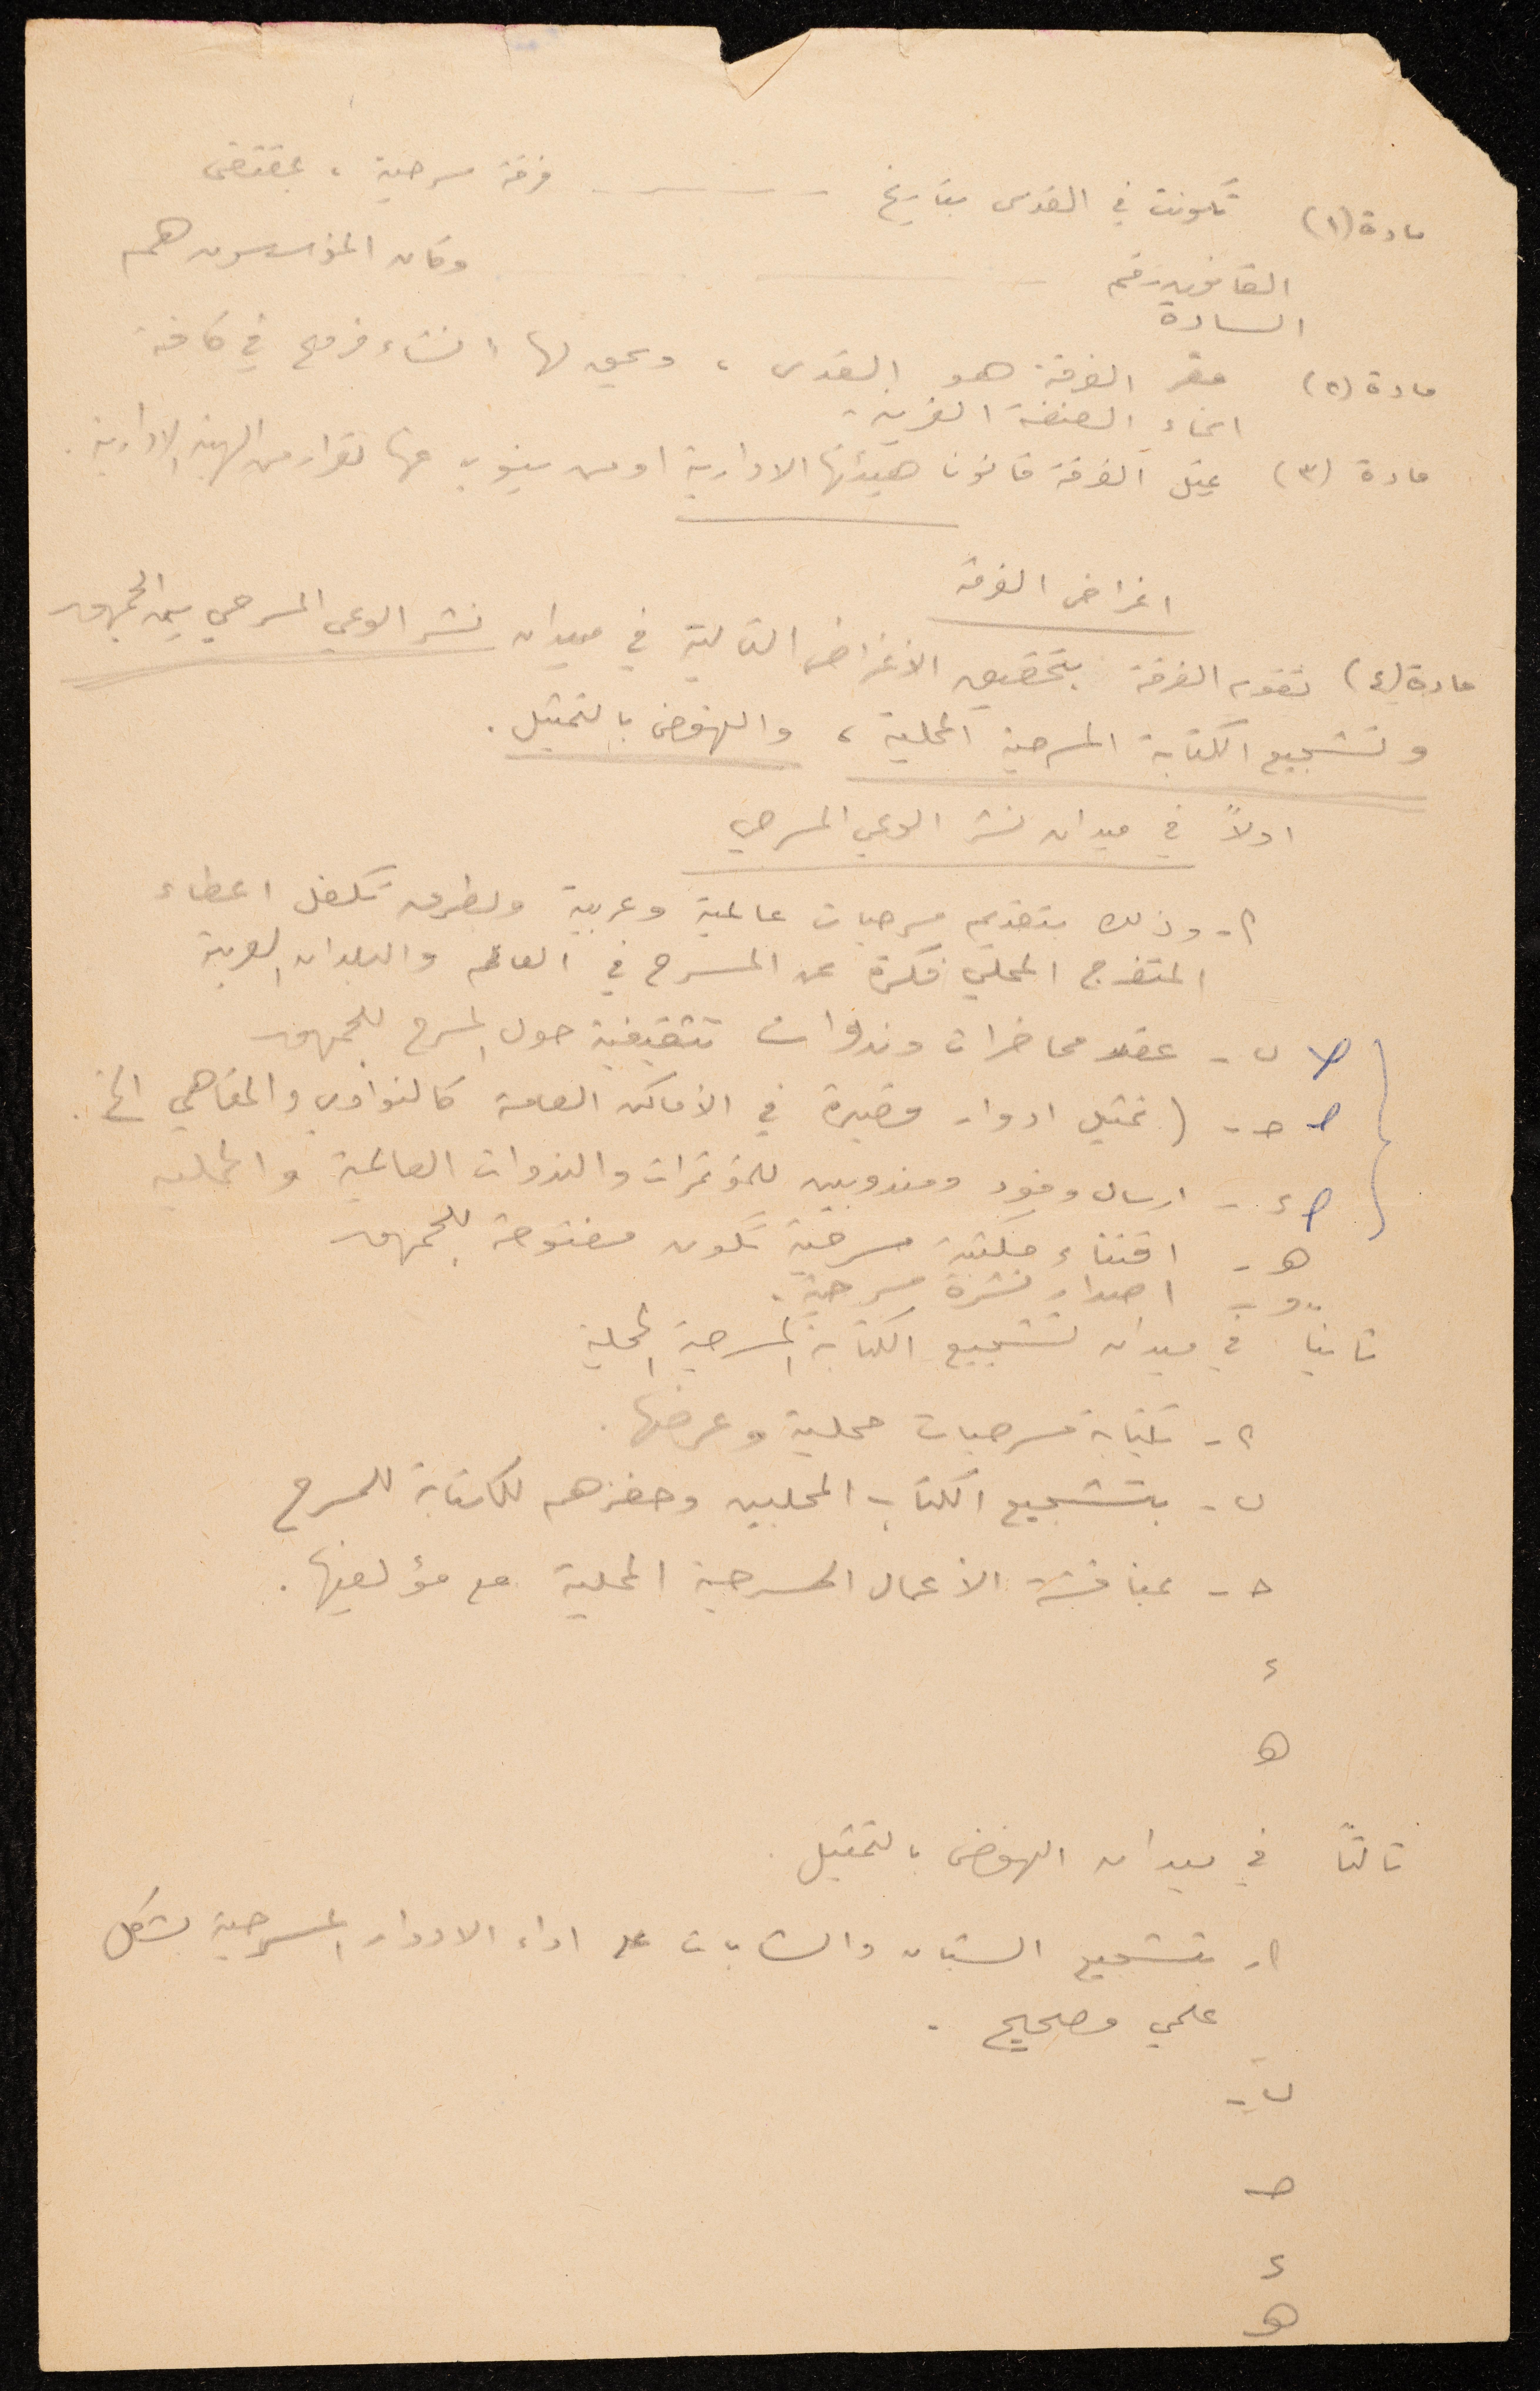 مادة (١) تكونت في القدس بتاريخ ـــــــــ فرقة مسرحية ، بمقتضى
القانون رقم ـــــــــ وكان المؤسسون هم
السادة
مادة (٢) مقر الفرقة هو القدس ، ويحق لها انشاء فروع في كافة
انحاء الضفة الغربية .
مادة (٣) يمثل الفرقة قانونا هيئتها الادارية او من ينوب عنها بقرار من الهيئة الادارية .
اغراض الفرقة
مادة (٤) تقوم الفرقة بتحقيق الأغراض التالية في ميدان نشر الوعي المسرحي بين الجمهور
وتشجيع الكتابة المسرحية المحلية ، والنهوض بالتمثيل .
اولاً في ميدان نشر الوعي المسرحي
أ - وذلك بتقديم مسرحيات عالمية وعربية وبطرق تكفل اعطاء
المتفرج المحلي فكرة عن المسرح في العالم والبلدان العربية
ب - عقد محاضرات وندوات تثقيفية حول المسرح للجمهور
ج - ( تمثيل ادوار قصيرة في الأماكن العامة كالنوادي والمقاهي الخ .
د - ارسال وفود ومندوبين للمؤتمرات والندوات العالمية والمحلية
هـ - اقتناء مكتبة مسرحية تكون مفتوحة للجمهور
و - اصدار نشرة مسرحية .
ثانيا في ميدان تشجيع الكتابة المسرحية المحلية
أ - بكتابة مسرحيات محلية وعرضها .
ب - بتشجيع الكتاب المحليين وحفزهم للكتابة للمسرح
ج - بمناقشة الأعمال المسرحية المحلية مع مؤلفيها .
د
هـ
ثالثاً في ميدان النهوض بالتمثيل .
أ - بتشجيع الشبان والشابات على اداء الادوار المسرحية بشكل
علمي وصحيح .
ب -
ج
د
هـ